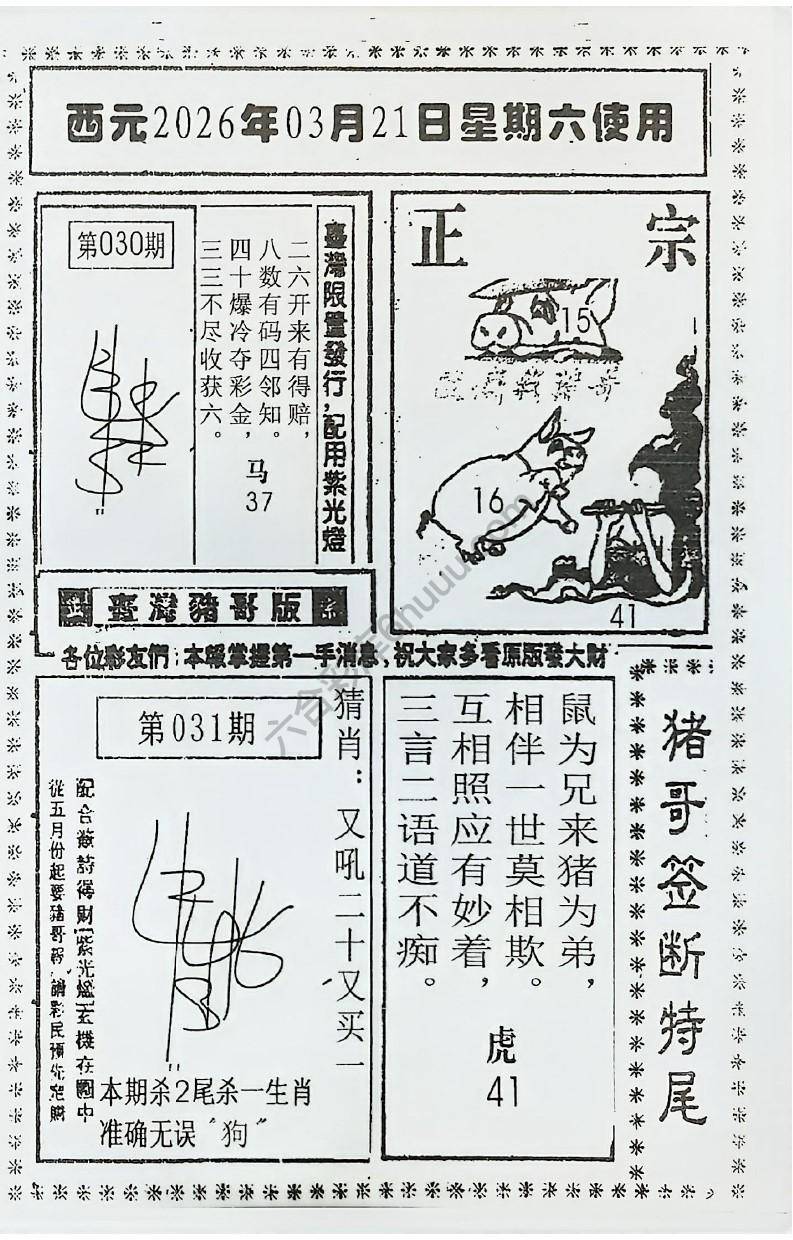 西元2026年03月21日星期六使用
第030期
二六开来有得赔，
八数有码四邻知。
四十爆冷夺彩金，
三三不尽收获六。
马
37
臺灣限量發行，配用紫光燈
正宗
15
16
41
臺灣豬哥版
各位彩友們：本報掌握第一手消息、祝大家多看原版發大財
第031期
猜肖：又吼二十又买一
配合簽詩得財
紫光燈玄機在圖中
從五月份起要豬哥報
請彩民預先定購
本期杀2尾杀一生肖
准确无误“狗”
鼠为兄来猪为弟，
相伴一世莫相欺。
互相照应有妙着，
三言二语道不痴。
虎
41
猪哥签断特尾
六合彩库